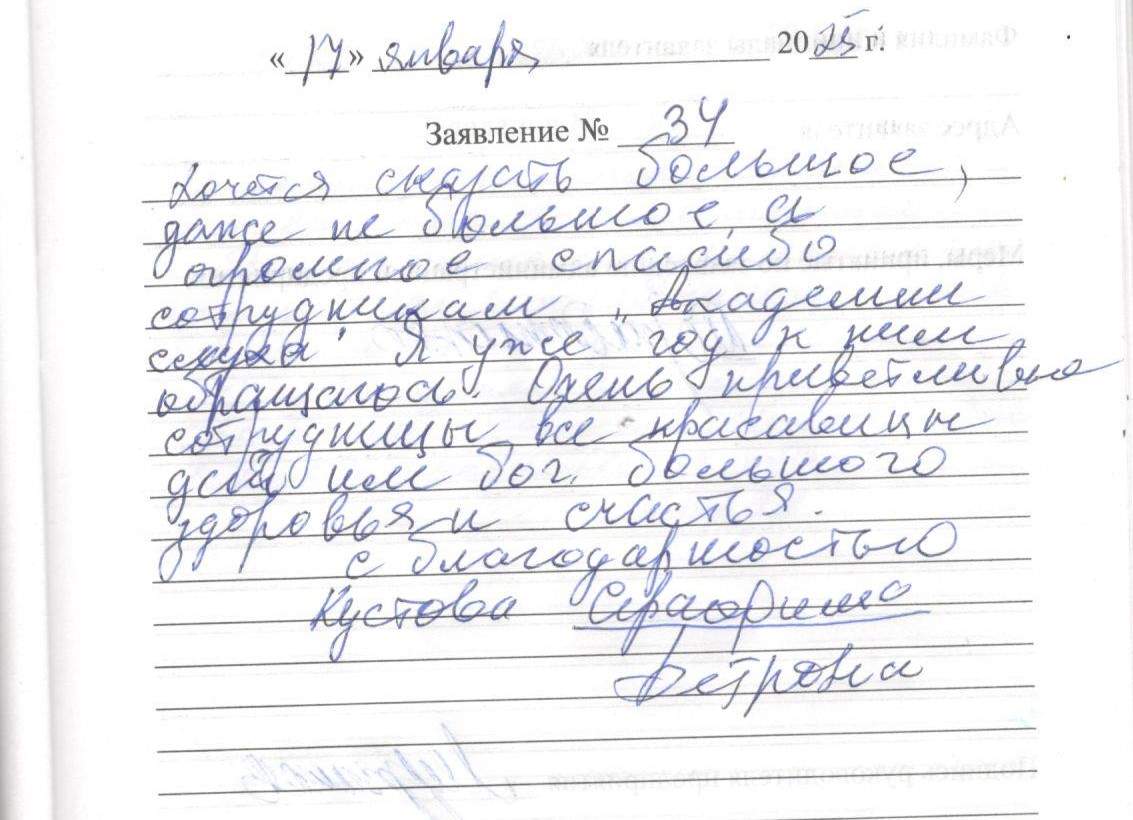 «17» января 2025 г.
Заявление № 34
Хочется сказать большое,
даже не большое, а
огромное спасибо
сотрудникам "Академии
слуха" Я уже год к ним
обращаюсь. Очень приветливые
сотрудницы все красавицы
дай им бог. большого
здоровья и счастья.
с благодарностью
Кустова Серафима
Петровна